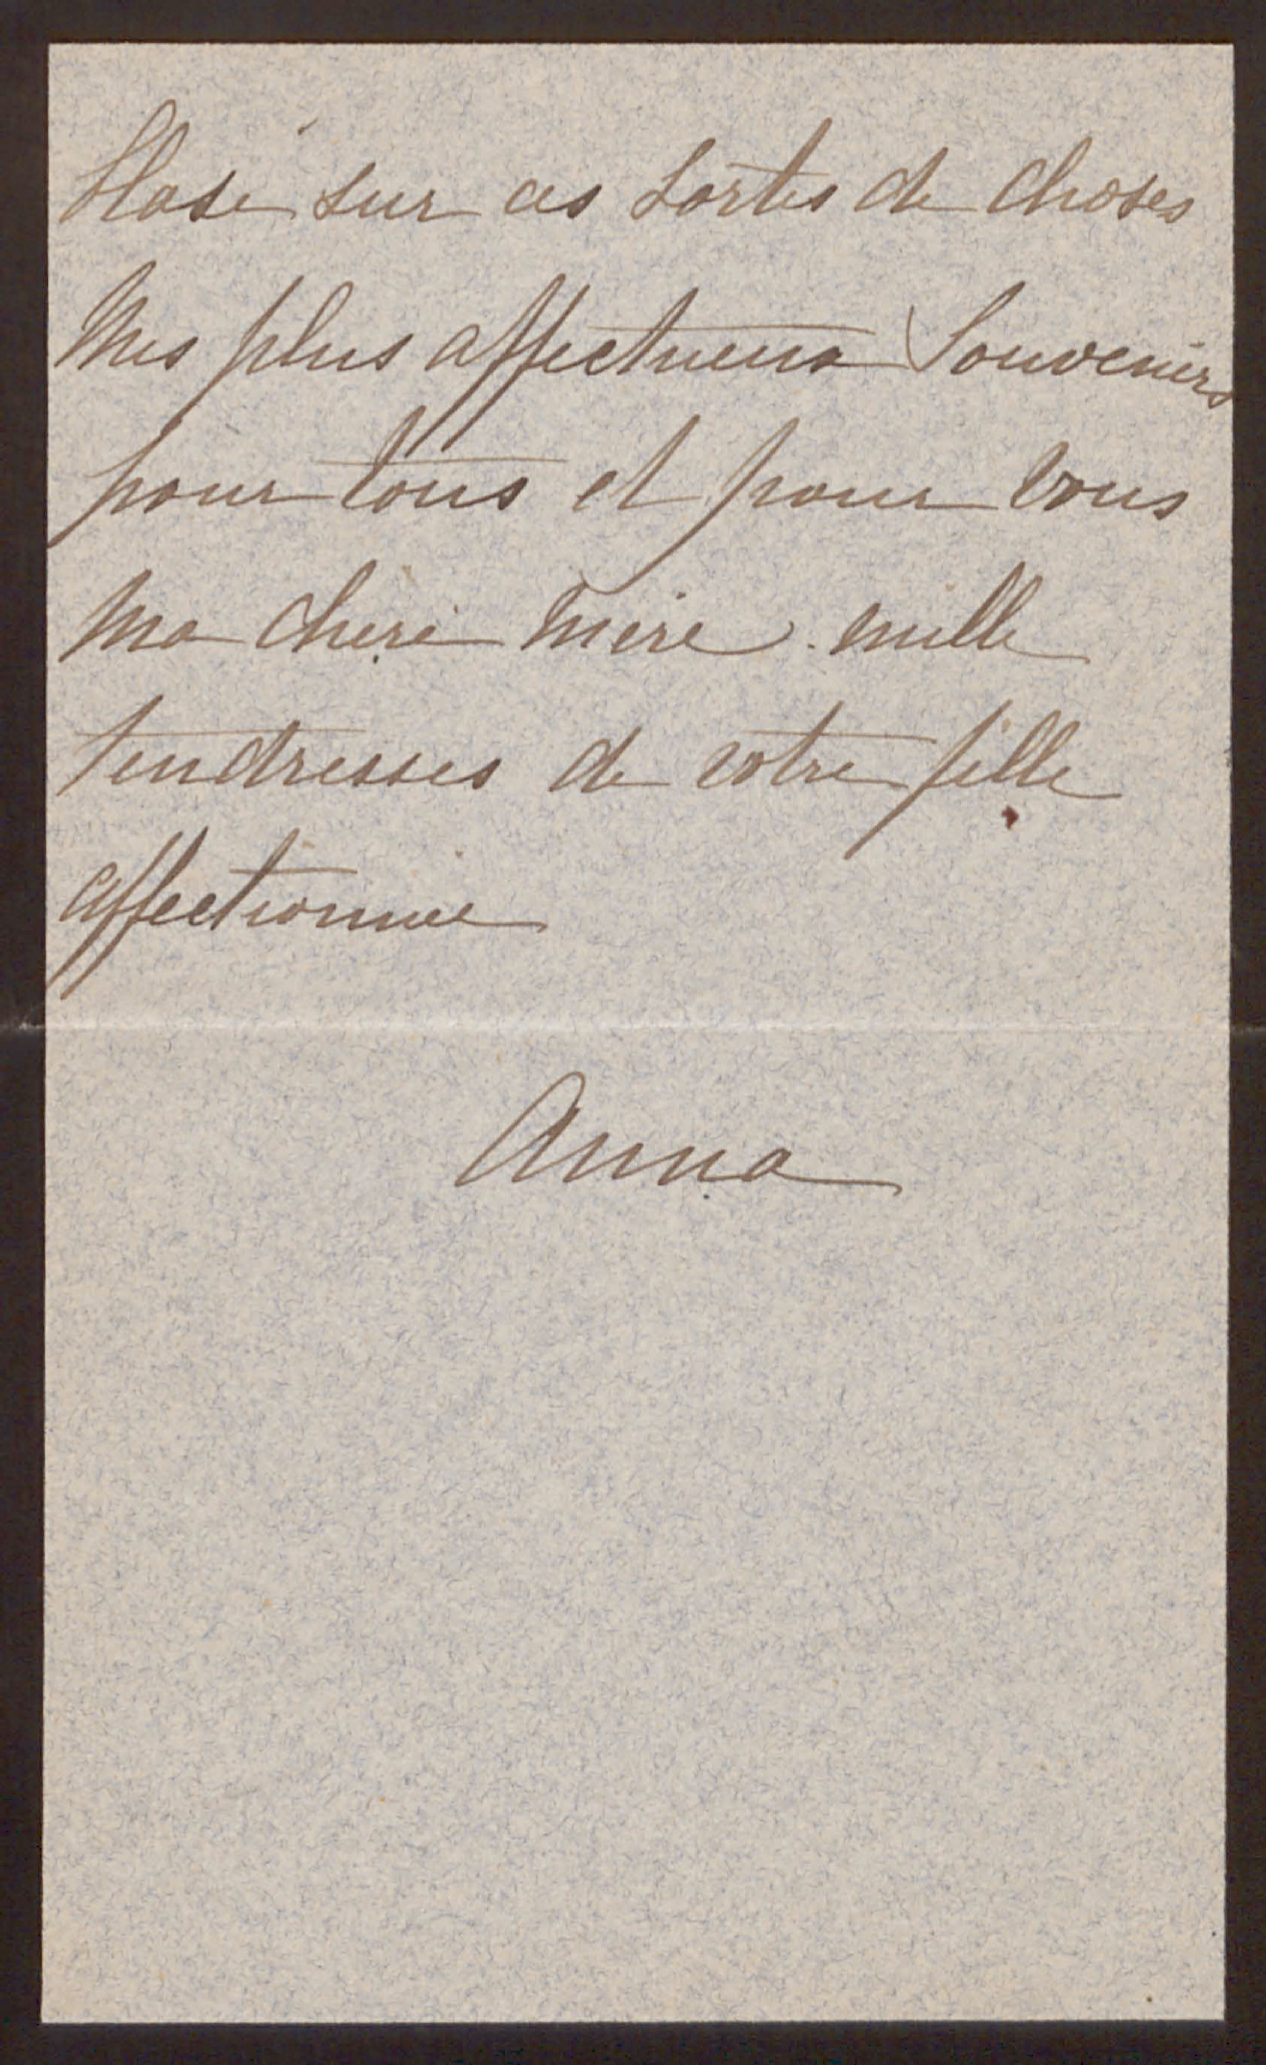 blasé sur ces sortes de choses
Mes plus affectueux Souvenirs
pour tous et pour vous
ma chère mère mille
tendresses de votre fille
affectionnée
Anna